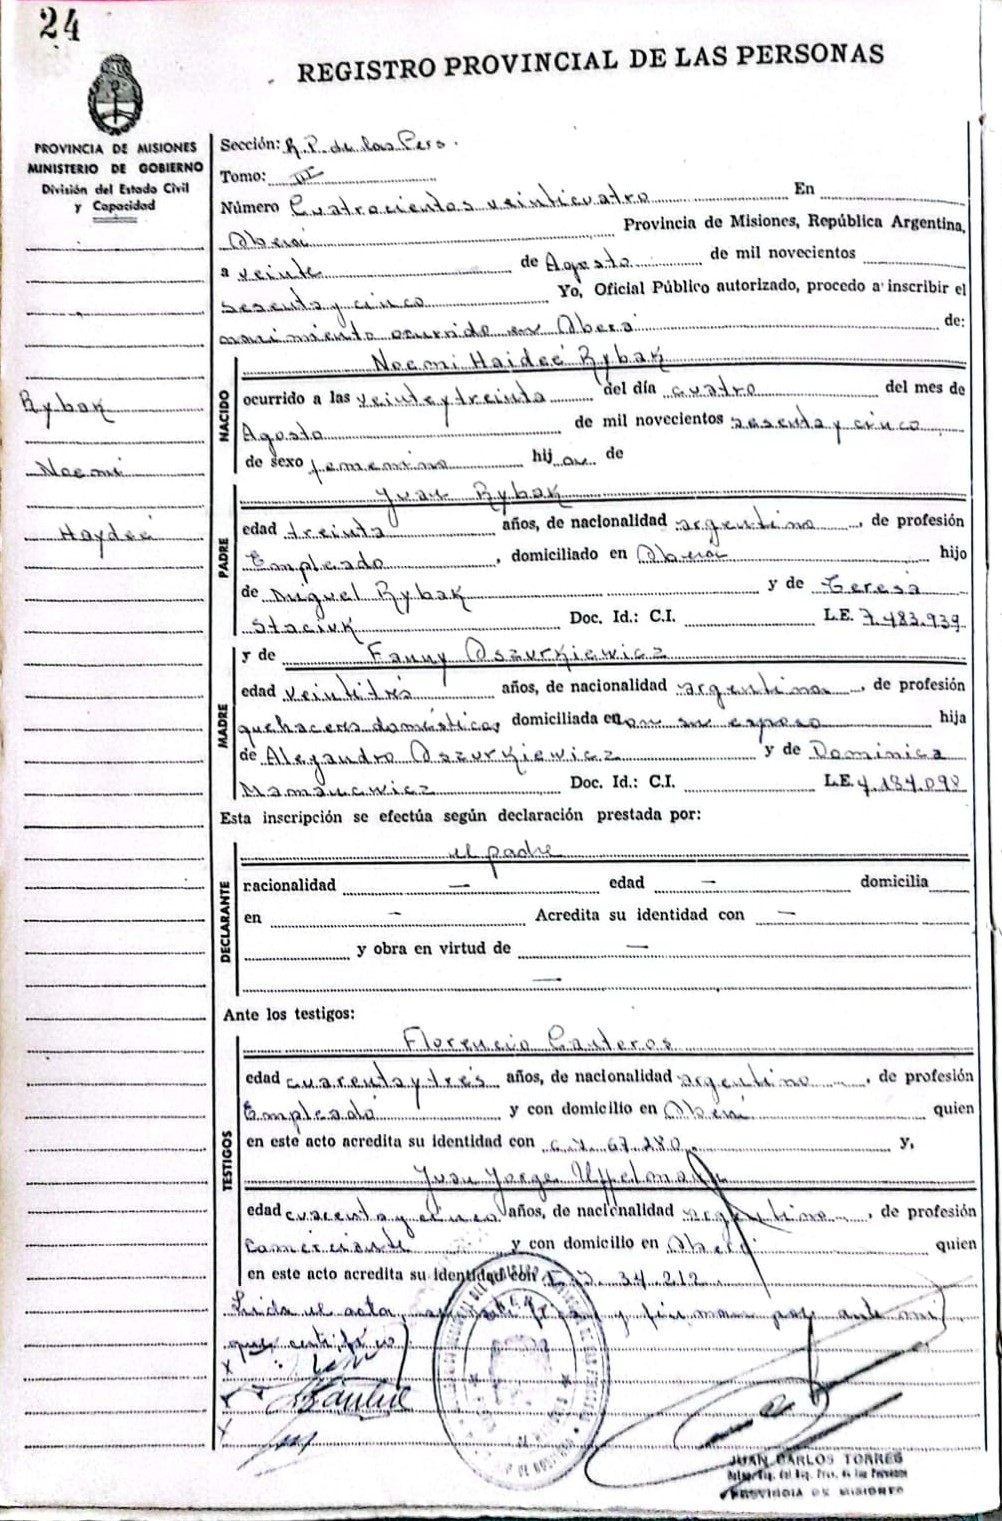 24
REGISTRO PROVINCIAL DE LAS PERSONAS
PROVINCIA DE MISIONES
MINISTERIO DE GOBIERNO
División del Estado Civil
y Capacidad
Rybak
Noemi
Haydeé
Sección: R.P. de las Pers.
Tomo: III
Número Cuatrocientos veinticuatro En
Oberá Provincia de Misiones, República Argentina,
a veinte de Agosto de mil novecientos
sesenta y cinco Yo, Oficial Público autorizado, procedo a inscribir el
nacimiento ocurrido en Oberá de:
NACIDO
Noemi Haideé Rybak
ocurrido a las veinte y treinta del día cuatro del mes de
Agosto de mil novecientos sesenta y cinco
de sexo femenino hija de
PADRE
Juan Rybak
edad treinta años, de nacionalidad argentino, de profesión
Empleado, domiciliado en Oberá hijo
de Miguel Rybak y de Teresa
Staciuk Doc. Id.: C.I. L.E. 7.483.939
MADRE
y de Fanny Oszurkiewicz
edad veintitrés años, de nacionalidad argentina, de profesión
quehaceres domésticos domiciliada en con su esposo hija
de Alejandro Oszurkiewicz y de Dominica
Doc. Id.: C.I. L.E.
Esta inscripción se efectúa según declaración prestada por:
DECLARANTE
el padre
nacionalidad — edad — domicilia
en — Acredita su identidad con —
y obra en virtud de —
—
Ante los testigos:
TESTIGOS
Florencio Canteros
edad cuarenta y tres años, de nacionalidad argentino, de profesión
Empleado y con domicilio en Oberá quien
en este acto acredita su identidad con c.i. 67.280. y,
Juan Jorge
edad cuarenta y cinco años, de nacionalidad argentino, de profesión
comerciante y con domicilio en Oberá quien
en este acto acredita su identidad con 34.212.
Leida el acta, y firman por ante mi
que certifico
JUAN CARLOS TORRES
PROVINCIA DE MISIONES